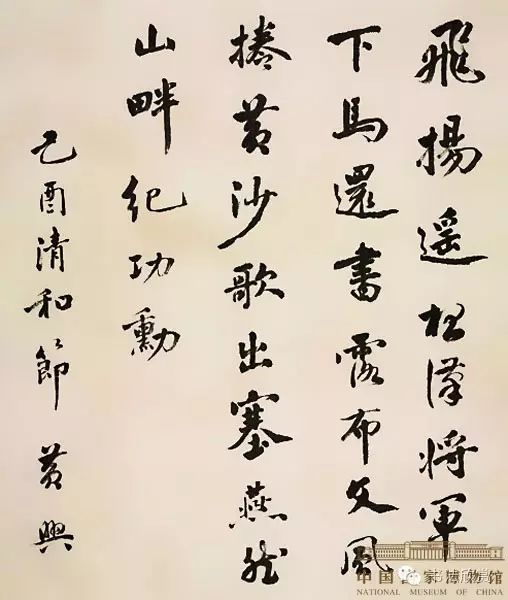 飛揚遥漢将軍
下馬還書露布文風
捲黄沙歌出塞燕然
山畔紀功勳
己酉清和節 黄興
中国国家博物馆
NATIONAL MUSEUM OF CHINA